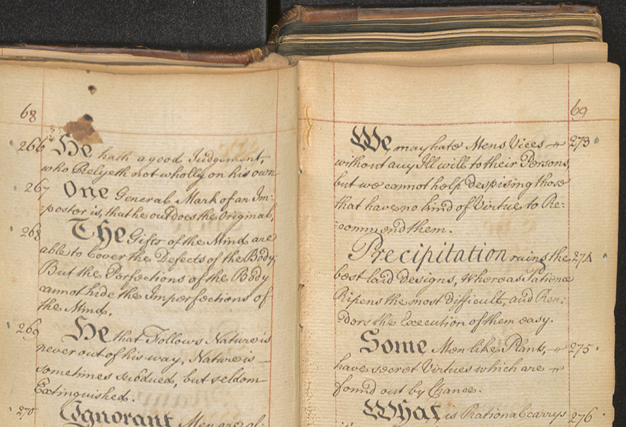 68
266 He hath a good Judgement,
who Relyeth not wholly on his own.
267 One General Mark of an Im-
postor is, that he outdoes the Original,
268 The Gifts of the Mind are
able to Cover the Defects of the Body,
But the Perfections of the Body
cannot hide the Imperfections of
the Mind.
269 He that Follows Nature is
never out of his way, Nature is
sometimes subdued, but seldom
Extinguished.
270 Ignorant Men are
69
We may hate Mens Vices 273
without any Ill will to their Persons,
but we cannot help despising those
that have no kind of Virtue to Re-
commend them.
Precipitation ruins the 274
best laid designs, Whereas Patience
Ripens the most difficult, and Ren-
ders the Execution of them easy.
Some Men like Plants, 275
have secret Virtues which are
found out by Chance.
What is Rational carrys 276